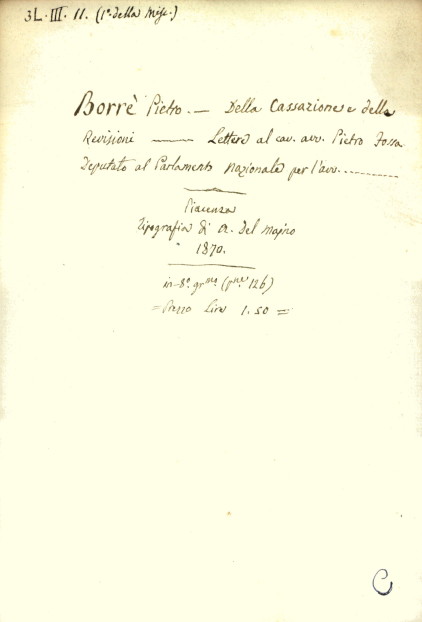 3L. III. 11. (1ª della Misc.)
Borrè Pietro. — Della Cassazione e della
Revisione —— Lettere al cav. avv. Pietro Fossa
Deputato al Parlamento Nazionale per l'avv. ..........
Piacenza
Tipografia di A. Del Majno
1870.
in-8º grⁿᵈᵉ (pⁿᵉ 126)
= Prezzo Lire 1.50 =
C